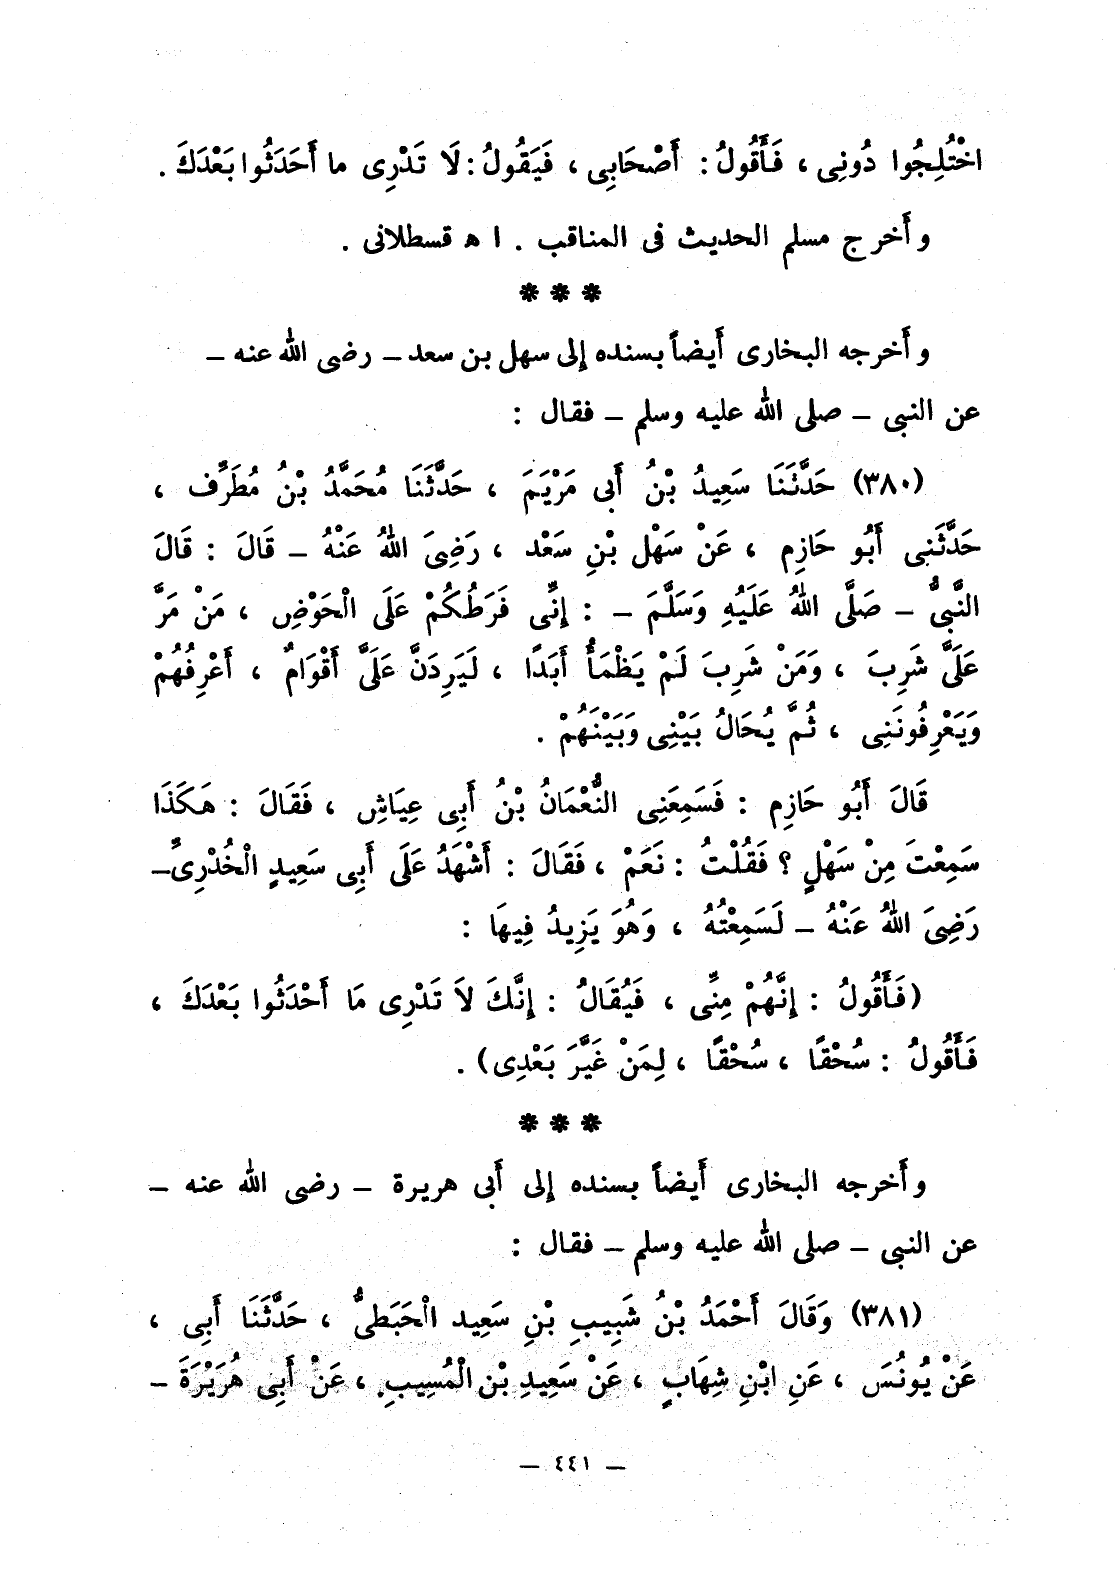 اخْتُلِجُوا دُونِى ، فَأَقُولُ : أَصْحَابِى ، فَيَقُولُ : لَا تَدْرِى ما أَحَدَثُوا بَعْدَكَ .
وأَخرج مسلم الحديث فى المناقب . ا ه قسطلانى .
* * *
وأَخرجه البخارى أَيضاً بسنده إلى سهل بن سعد – رضى الله عنه –
عن النبى – صلى الله عليه وسلم – فقال :
(٣٨٠) حَدَّثَنَا سَعِيدُ بْنُ أَبى مَرْيَمَ ، حَدَّثَنَا مُحَمَّدُ بْنُ مُطَرِّف ،
حَدَّثَنِى أَبُو حَازِم ، عَنْ سَهْل بْنِ سَعْد ، رَضِىَ اللهُ عَنْهُ – قَالَ : قَالَ
النَّبِىُّ – صَلَّى اللهُ عَلَيْهِ وَسَلَّمَ – : إِنِّى فَرَطُكُمْ عَلَى الْحَوْضِ ، مَنْ مَرَّ
عَلَىَّ شَرِبَ ، وَمَنْ شَرِبَ لَمْ يَظْمَأْ أَبَدًا ، لَيَرِدَنَّ عَلَىَّ أَقْوَامٌ ، أَعْرِفُهُمْ
وَيَعْرِفُونَنِى ، ثُمَّ يُحَالُ بَيْنِى وَبَيْنَهُمْ .
قَالَ أَبُو حَازِم : فَسَمِعَنِى النُّعْمَانُ بْنُ أَبِى عِيَاشِ ، فَقَالَ : هَكَذَا
سَمِعْتَ مِنْ سَهْلٍ ؟ فَقُلْتُ : نَعَمْ ، فَقَالَ : أَشْهَدُ عَلَى أَبِى سَعِيدٍ الْخُدْرِىِّ–
رَضِىَ اللهُ عَنْهُ – لَسَمِعْتُهُ ، وَهُوَ يَزِيدُ فِيهَا :
(فَأَقُولُ : إِنَّهُمْ مِنِّى ، فَيُقَالُ : إِنَّكَ لاَ تَدْرِى مَا أَحْدَثُوا بَعْدَكَ ،
فَأَقُولُ : سُحْقًا ، سُحْقًا ، لِمَنْ غَيَّرَ بَعْدِى) .
* * *
وأَخرجه البخارى أَيضاً بسنده إلى أَبى هريرة – رضى الله عنه –
عن النبى – صلى الله عليه وسلم – فقال :
(٣٨١) وَقَالَ أَحْمَدُ بْنُ شَبِيبِ بْنِ سَعِيد الْحَبَطىُّ ، حَدَّثَنَا أَبِى ،
عَنْ يُونُسَ ، عَنِ ابْنِ شِهَابٍ ، عَنْ سَعِيدِ بْنِ الْمُسِيبِ ، عَنْ أَبِى هُرَيْرَةَ –
– ٤٤١ –